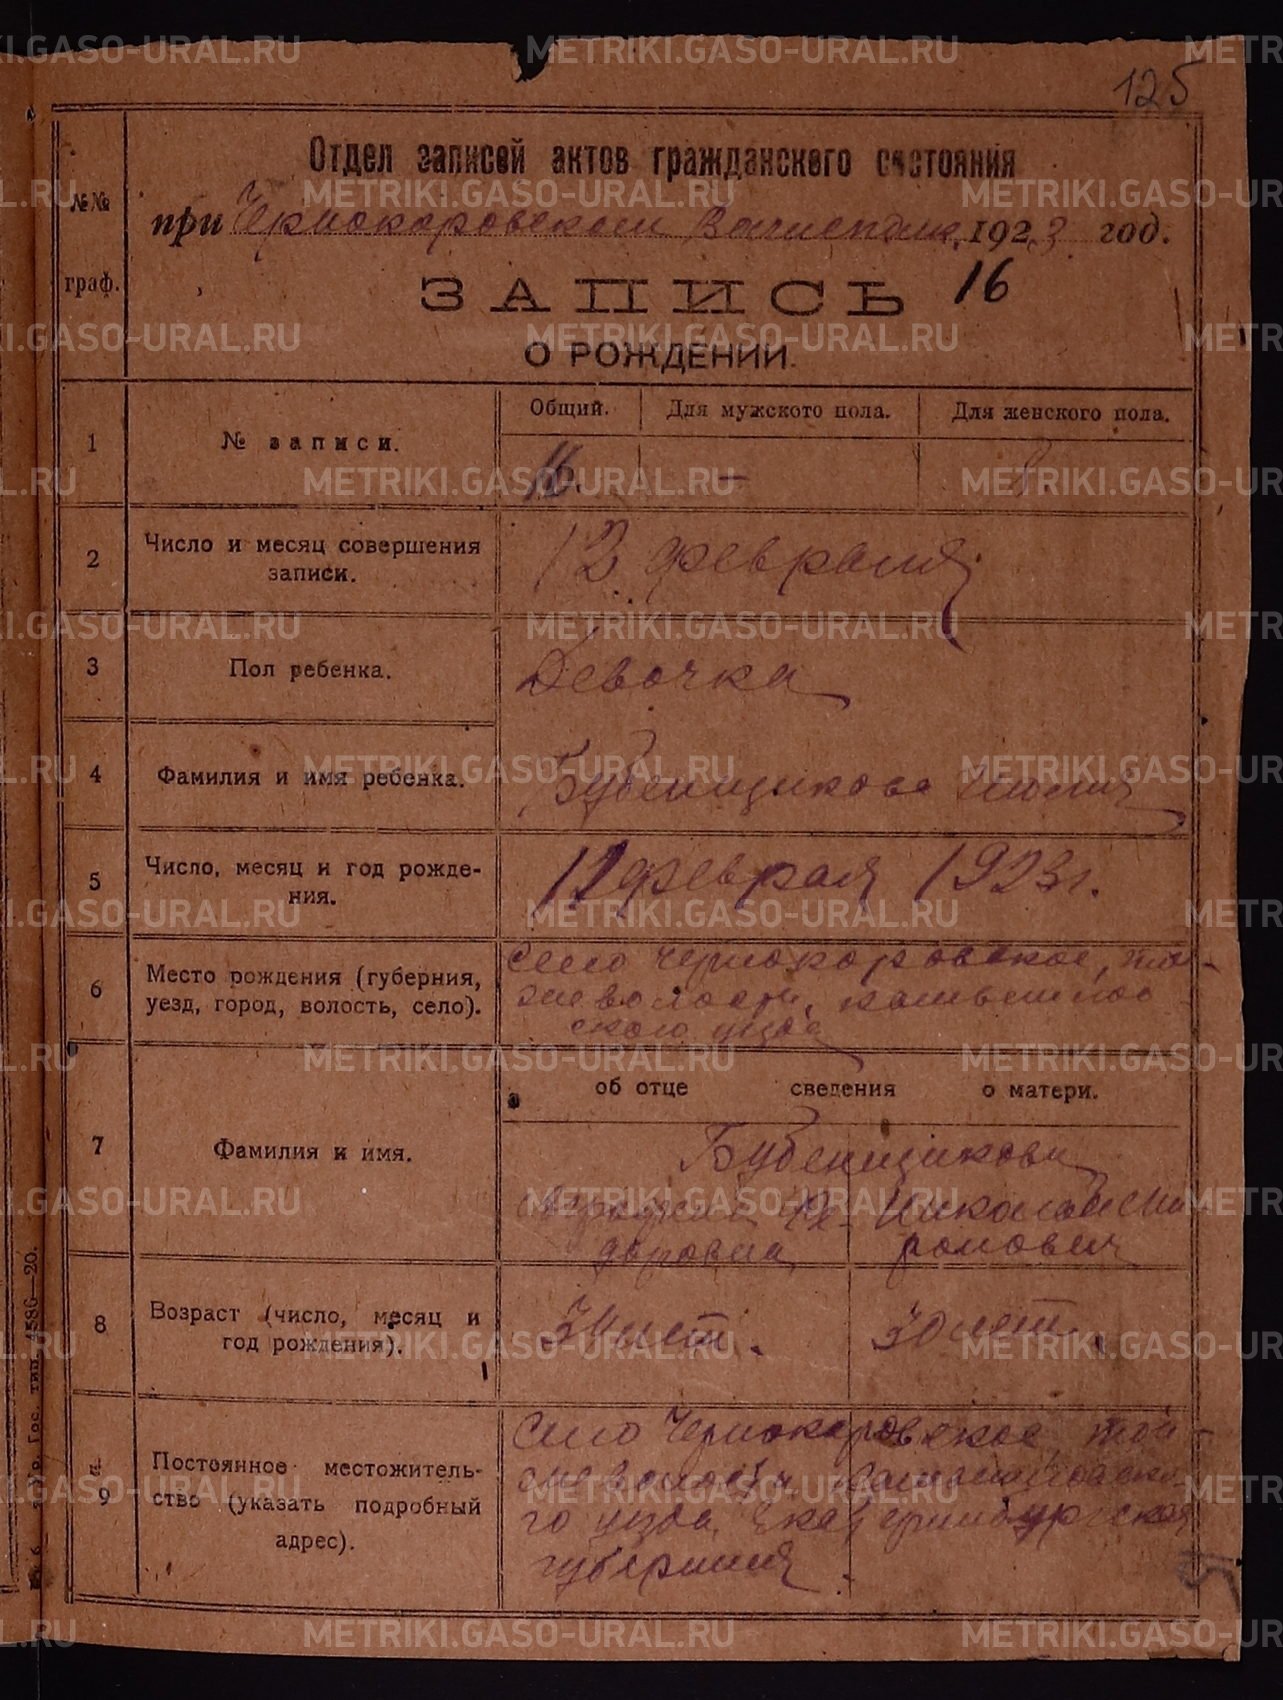 125
Отдел записей актов гражданского состояния
№№ граф.
при Чернокоровском 1923 год.
ЗАПИСЬ 16
О РОЖДЕНИИ.
Общий. Для мужского пола. Для женского пола.
1 № записи. 16. — 8.
2 Число и месяц совершения записи. 12 февраля
3 Пол ребенка. Девочка
4 Фамилия и имя ребенка. Бубенщикова
5 Число, месяц и год рождения. 11 февраля 1923 г.
6 Место рождения (губерния, уезд, город, волость, село). село Чернокоровское, той-
же волости, камышлов
ского уезда
об отце сведения о матери.
7 Фамилия и имя. Бубенщиковы
доровна
8 Возраст (число, месяц и год рождения). лет. 30 лет.
9 Постоянное местожительство (указать подробный адрес). Село Чернокоровское, той-
же волости, Камышловско-
го уезда, Екатеринбургская
губерния.
Гос. тип. 4586—20.
METRIKI.GASO-URAL.RU